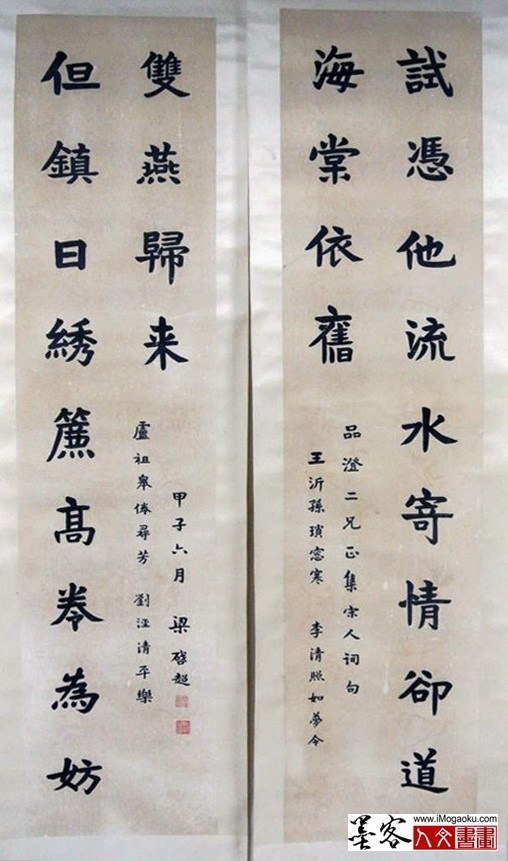 試憑他流水寄情卻道
海棠依舊
品澄二兄正集宋人詞句
王沂孫瑣窓寒 李清照如夢令
但鎮日綉簾高卷為妨
雙燕歸来
盧祖皋倦尋芳 劉涇清平樂
甲子六月 梁啓超
www.iMogaoku.com
墨客人文書畫